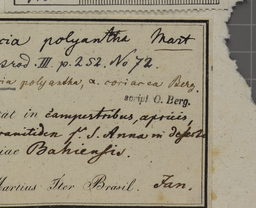 cia polyantha Mart
srod. III. p. 252. No 72.
ia polyantha, α. coriacea Berg.
script O. Berg.
at in campestribus, apricis,
S. Anna in deserto
iae Bahiensis.
Martius Iter Brasil. Jan.